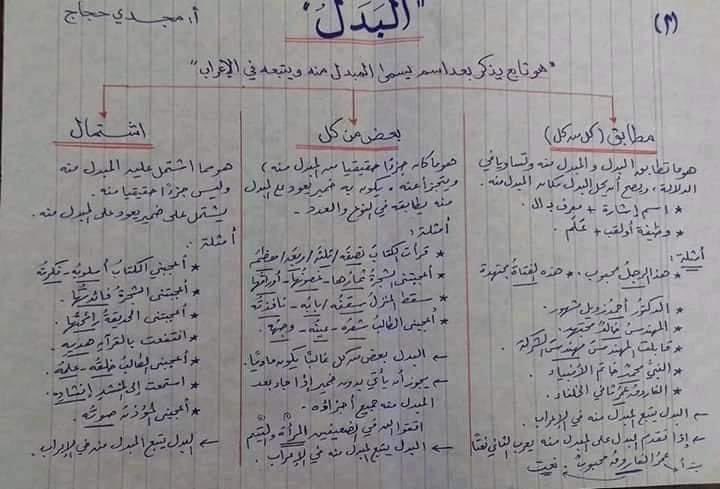 (٣)
"البَدَلُ"
أ. مجدي حجاج
"هو تابع يذكر بعد اسم يسمى المبدل منه ويتبعه في الإعراب"
مطابق (كل من كل)
هو ما تطابق البدل و المبدل منه وتساويا في
الدلالة، ويصح أن يحل البدل مكان المبدل منه.
* اسم إشارة + معرف بـ ال.
* وظيفة أو لقب + عَلَم.
أمثلة:
* هذا الرجلُ محبوب. * هذه الفتاةُ مجتهدة
* الدكتورُ أحمدُ زويل مشهور.
* المهندسُ خالدٌ مجتهد.
* قابلت المهندسَ مهندسَ الشركة.
* النبيُّ محمدٌ خاتم الأنبياء
* الفاروقُ عمرُ ثاني الخلفاء.
← البدل يتبع المبدل منه في الإعراب.
← إذا تقدم البدل على المبدل منه يعرب الثاني نعتًا
عمرُ الفاروقُ محبوبٌ. نعت
بعض من كل
هو ما كان جزءًا حقيقيا من المبدل منه،
ويتجزأ عنه، يكون به ضمير يعود على المبدل
منه يطابقه في النوع والعدد.
أمثلة:
* قرأت الكتابَ نصفَه / ثلثَه / ربعَه / معظمَ
* أعجبتني الشجرةُ ثمارُها - غصونُها - أوراقُها
* سقط المنزلُ سقفُه / بابُه - نافذتُه
* أعجبني الطالبُ شعرُه - عينُه - وجهُه.
← البدل بعض من كل غالبًا يكون ماديًا.
← يجوز أن يأتي بدون ضمير إذا جاء بعد
المبدل منه جميع أجزاؤه.
اتقوا الله في الضعيفين المرأةِ واليتيمِ
← البدل يتبع المبدل منه في الإعراب.
اشتمال
هو ما اشتمل عليه المبدل منه
وليس جزءًا حقيقيا منه.
يشتمل على ضمير يعود على المبدل منه.
أمثلة:
* أعجبني الكتابُ أسلوبُه - فكرتُه
* أعجبتني الشجرةُ فائدتُها.
* أعجبتني الحديقةُ رائحتُها.
* انتفعت بالقرآنِ هديِه.
* أعجبني الطالبُ خلقُه - علمُه.
* استمعت إلى المنشدِ إنشادِه.
* أعجبني المؤذنُ صوتُه.
← البدل يتبع المبدل منه في الإعراب.